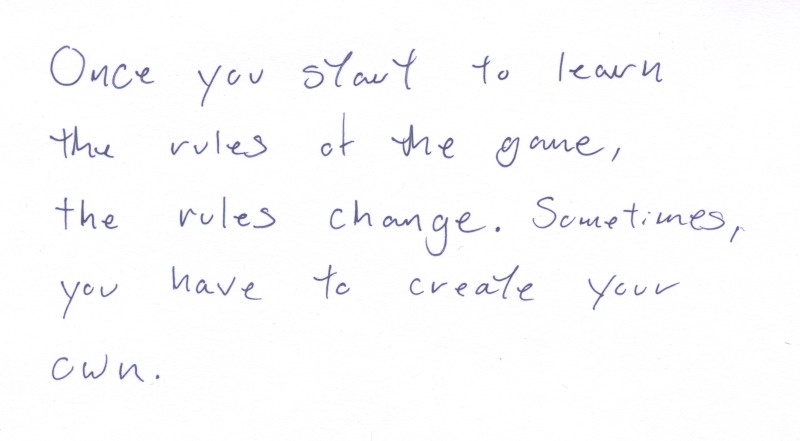 Once you start to learn
the rules of the game,
the rules change. Sometimes,
you have to create your
own.